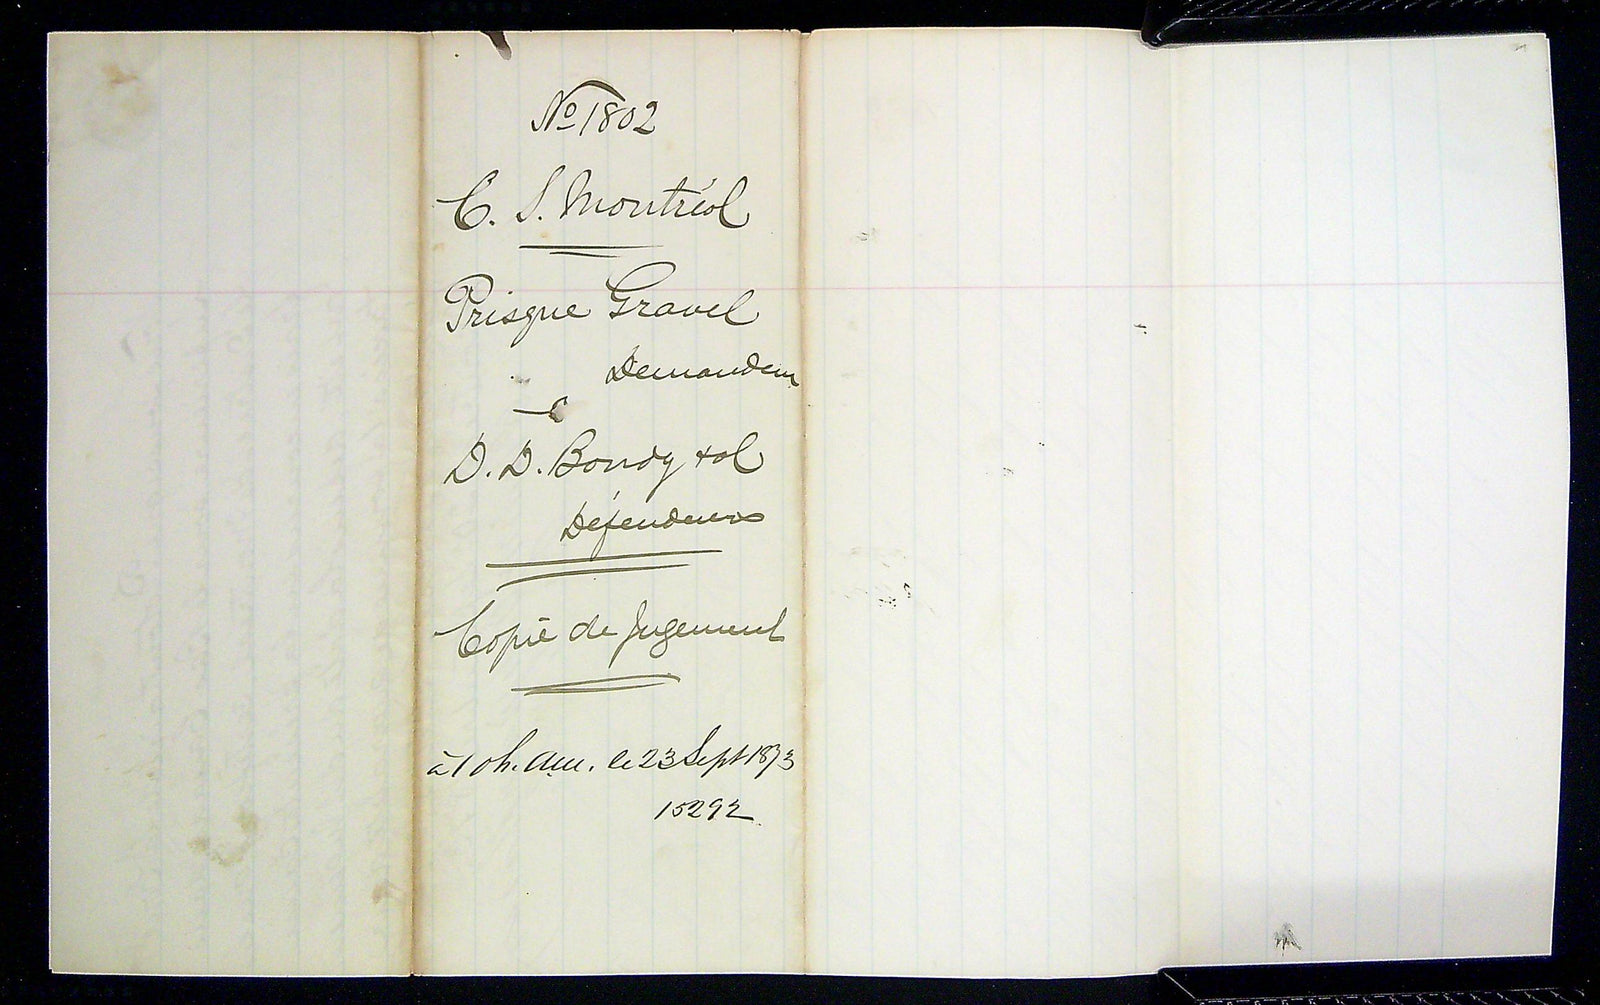 No 1802
C. S. Montréal
Prisque Gravel
Demandeur
D. D. Bondy & al
Défendeurs
Copie de Jugement
à 10 h. a.m. le 23 Sept 1873
15292